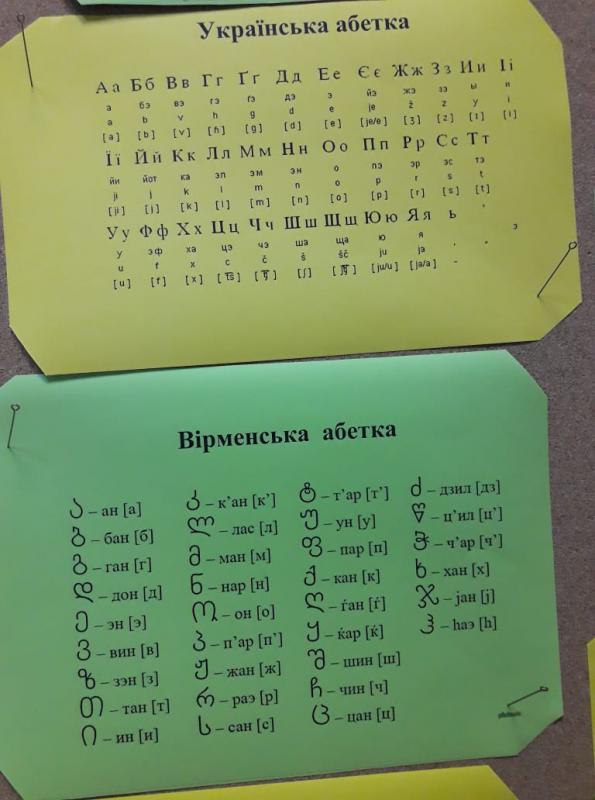 Українська абетка
Аа Бб Вв Гг Ґґ Дд Ее Єє Жж Зз Ии Іі
а бэ вэ гэ ґэ дэ э йэ жэ зэ ы и
a b v h g d e je ž z y i
[a] [b] [v] [ɦ] [g] [d] [e] [je/e] [ʒ] [z] [ɪ] [i]
Її Йй Кк Лл Мм Нн Оо Пп Рр Сс Тт
йи йот ка эл эм эн о пэ эр эс тэ
ji j k l m n o p r s t
[ji] [j] [k] [l] [m] [n] [o] [p] [r] [s] [t]
Уу Фф Хх Цц Чч Шш Щщ Юю Яя ь '
у эф ха цэ чэ ша ща ю я э
u f x c č š šč ju ja
[u] [f] [x] [t͡s] [t͡ʃ] [ʃ] [ju/u] [ja/a] -
Вірменська абетка
ა – ан [а]
ბ – бан [б]
გ – ган [г]
დ – дон [д]
ე – эн [э]
ვ – вин [в]
ზ – зэн [з]
თ – тан [т]
ი – ин [и]
კ – к’ан [к’]
ლ – лас [л]
მ – ман [м]
ნ – нар [н]
ო – он [о]
პ – п’ар [п’]
ჟ – жан [ж]
რ – раэ [р]
ს – сан [с]
ტ – т’ар [т’]
უ – ун [у]
ფ – пар [п]
ქ – кан [к]
ღ – ѓан [ѓ]
ყ – ќар [ќ]
შ – шин [ш]
ჩ – чин [ч]
ც – цан [ц]
ძ – дзил [дз]
წ – ц’ил [ц’]
ჭ – ч’ар [ч’]
ხ – хан [х]
ჯ – јан [ј]
ჰ – һаэ [һ]